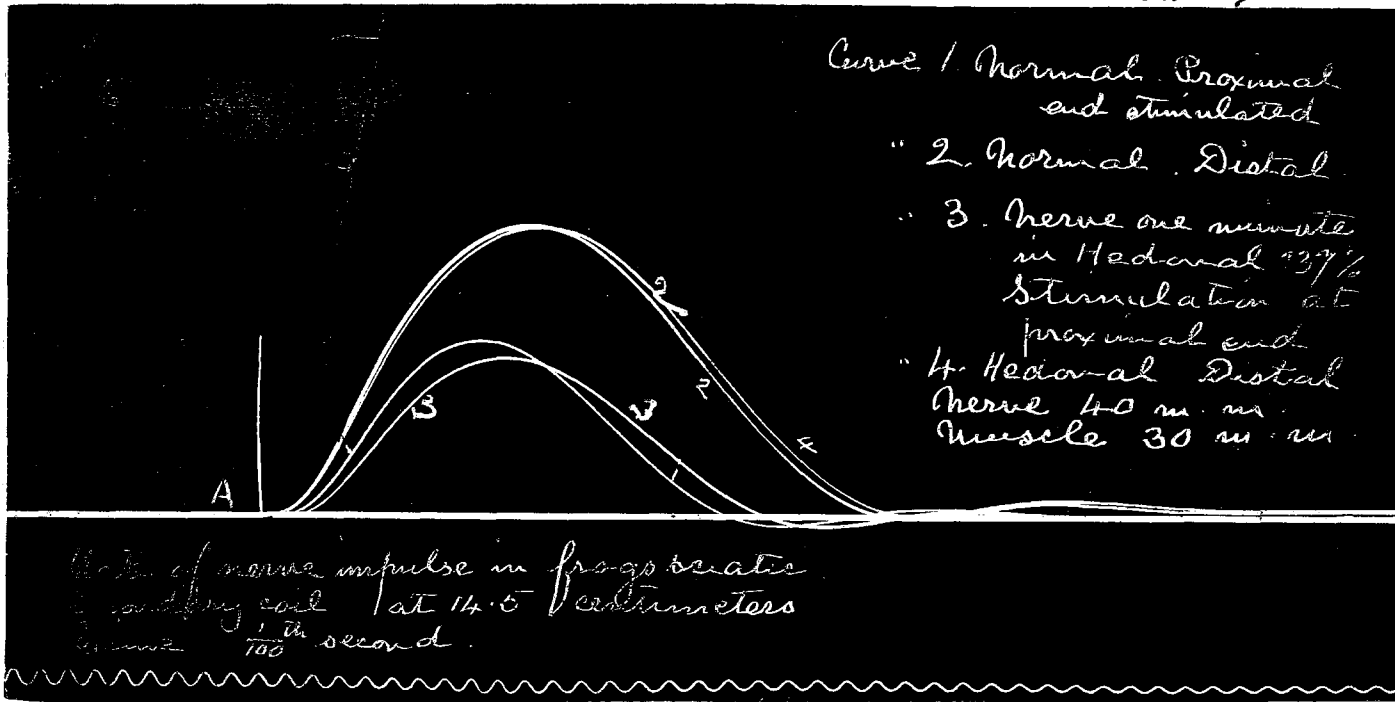 Curve 1. Normal. Proximal
end stimulated
" 2. Normal. Distal
" 3. Nerve one minute
in Hedonal
Stimulation at
proximal end
" 4. Hedonal Distal
Nerve 40 m.m.
Muscle 30 m.m.
2
2
3
3
1
1
4
A
of nerve impulse in frogs sciatic
coil at 14.5 centimeters
1/100 th second.